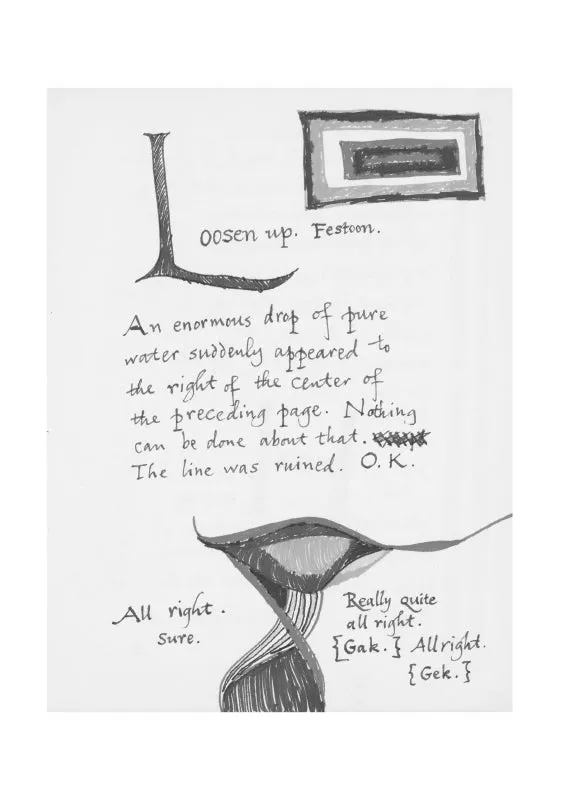 Loosen up. Festoon.
An enormous drop of pure
water suddenly appeared to
the right of the center of
the preceding page. Nothing
can be done about that.
The line was ruined. O.K.
All right.
Sure.
Really quite
all right.
{Gak.} All right.
{Gek.}